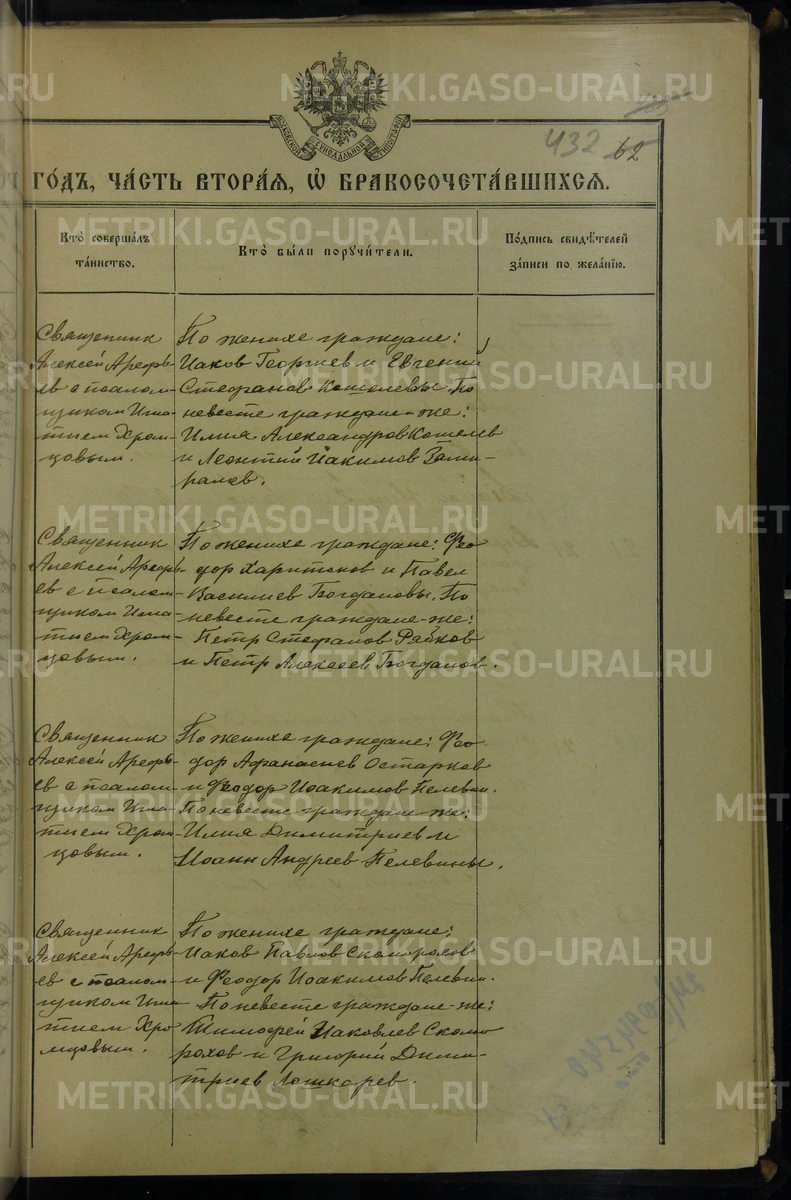 432 62
МОСКОВСКОЙ СѴНОДАЛЬНОЙ ТИПОГРАФІИ
ГО́ДЪ, ЧА́СТЬ ВТОРА́Я, Ѡ БРАКОСОЧЕТА́ВШИХСЯ.
Кто̀ соверша́лъ
та́инство.
Кто̀ бы́ли порꙋчи́тели.
По́дпись свидѣ́телей
за́писи по жела́нїю.
Священник
Алексей Арефь-
ев с псалом-
щиком Игна-
тием Хром-
цовым.
По женихе граждане:
Иаков Георгиев и Евгений
Стефанов Кошелевы. По
невесте граждане-же:
Илия Александров Кошелев
и Леонтий Иакимов
Священник
Алексей Арефь-
ев с псалом-
щиком Игна-
тием Хром-
цовым.
По женихе граждане: Фео
дор Харитонов и Павел
Василиев Богдановы. По
невесте граждане-же:
Петр Стефанов Рабков
и Петр Алексеев Богданов.
Священник
Алексей Арефь-
ев с псалом-
щиком Игна-
тием Хром-
цовым.
По женихе граждане: Фео
дор Афанасиев Остарков
и Феодор Иоакимов Пелевин.
По невесте граждане-же:
Илия Димитриев и
Иоанн Андреев Пелевины.
Священник
Алексей Арефь-
ев с псалом-
щиком Игна
тием Хро
мцовым.
По женихе граждане:
Иаков Павлов Скоморохов
и Феодор Иоакимов Пелевин.
По невесте граждане-же:
Тимофей Иаковлев Скомо
рохов и Григорий Дими-
триев Лошкарев.
METRIKI.GASO-URAL.RU